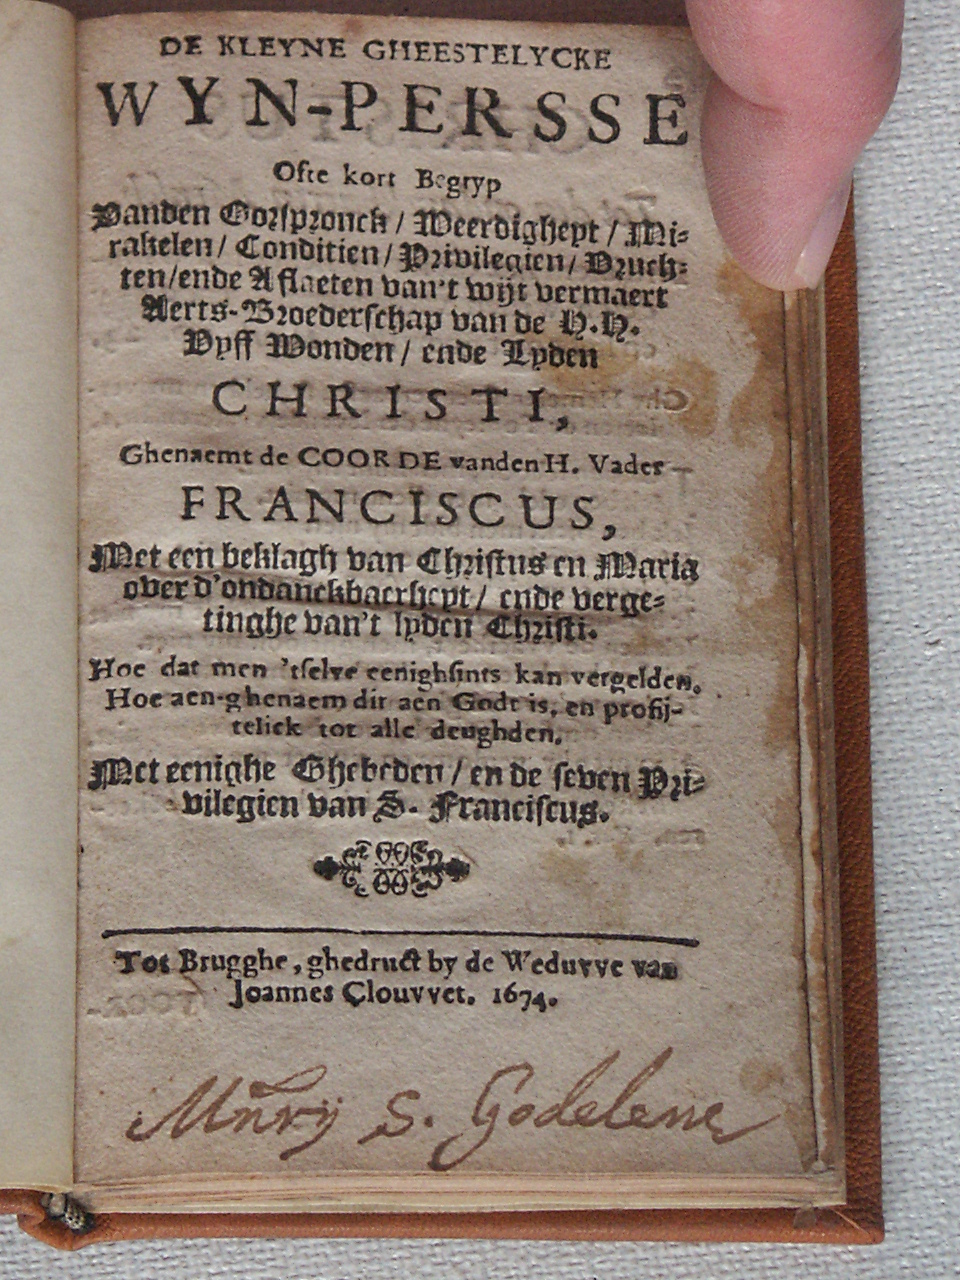 DE KLEYNE GHEESTELYCKE
WYN-PERSSE
Ofte kort Begryp
Vanden Oorspronck / Weerdigheyt / Mi-
rakelen / Conditien / Privilegien / Vruch-
ten / ende Aflaeten van't wijt vermaert
Aerts-Broederschap van de H.H.
Vyff Wonden / ende Lyden
CHRISTI,
Ghenaemt de COORDE vanden H. Vader
FRANCISCUS,
Met een beklagh van Christus en Maria
over d'ondanckbaerheyt / ende verge-
tinghe van't lyden Christi.
Hoe dat men 'tselve eenighsints kan vergelden.
Hoe aen-ghenaem dit aen Godt is, en profij-
telick tot alle deughden.
Met eenighe Ghebeden / en de seven Pri-
vilegien van S. Franciscus.
Tot Brugghe, ghedruct by de Weduvve van
Joannes Clouvvet. 1674.
S. Godelene